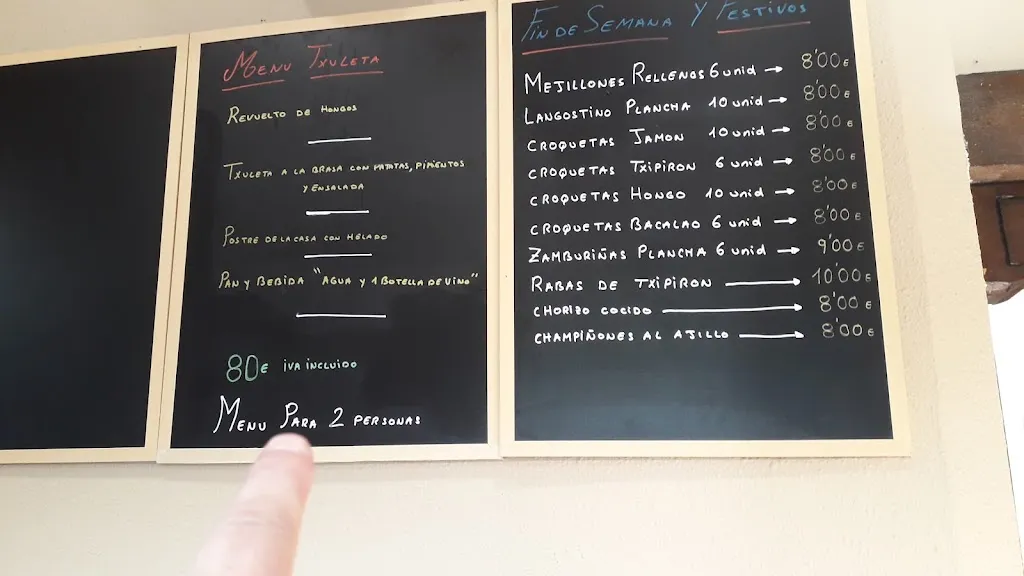 MENU TXULETA
REVUELTO DE HONGOS
TXULETA A LA BRASA CON PATATAS, PIMIENTOS
Y ENSALADA
POSTRE DE LA CASA CON HELADO
PAN Y BEBIDA "AGUA Y 1 BOTELLA DE VINO"
80€ IVA INCLUIDO
MENU PARA 2 PERSONAS
FIN DE SEMANA Y FESTIVOS
MEJILLONES RELLENOS 6 unid → 8'00€
LANGOSTINO PLANCHA 10 unid → 8'00€
CROQUETAS JAMON 10 unid → 8'00€
CROQUETAS TXIPIRON 6 unid → 8'00€
CROQUETAS HONGO 10 unid → 8'00€
CROQUETAS BACALAO 6 unid → 8'00€
ZAMBURIÑAS PLANCHA 6 unid → 9'00€
RABAS DE TXIPIRON → 10'00€
CHORIZO COCIDO → 8'00€
CHAMPIÑONES AL AJILLO → 8'00€